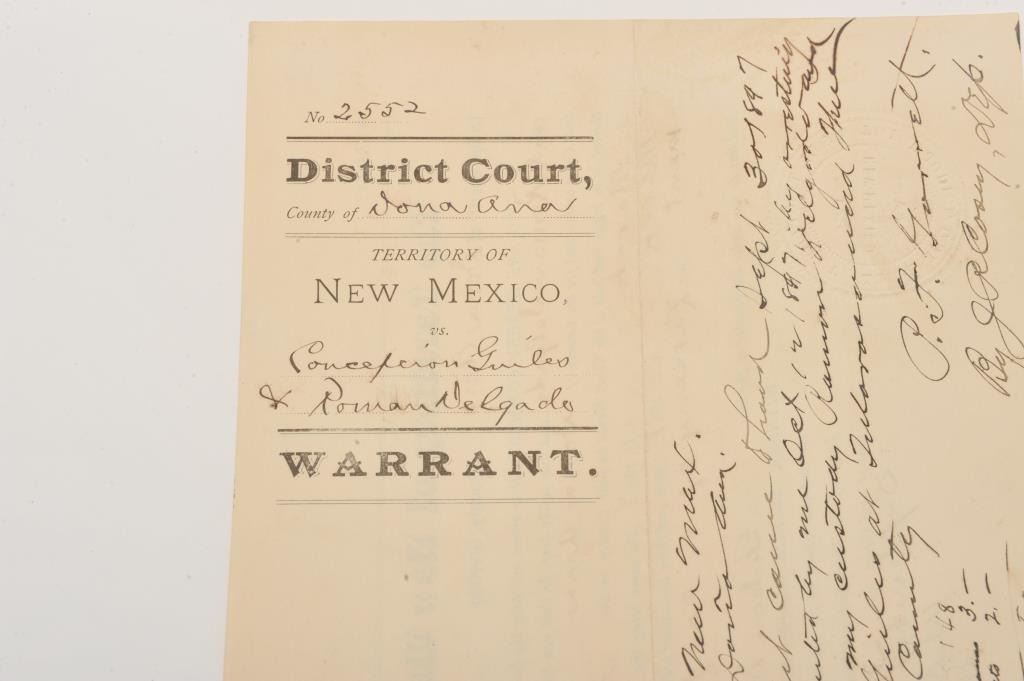 No 2552
District Court,
County of Dona Ana
TERRITORY OF
NEW MEXICO,
vs.
Concepcion Guiles
& Roman Delgado
WARRANT.
New Mex.
Dona Ana.
came to hand Sept 30 1897
by me Oct 12 1897, by arresting
my custody Ramon Delgado and
Guiles at Tularosa and Three
County
P. F. Garrett.
By J R Coony, Dep.
148
3.—
2.—